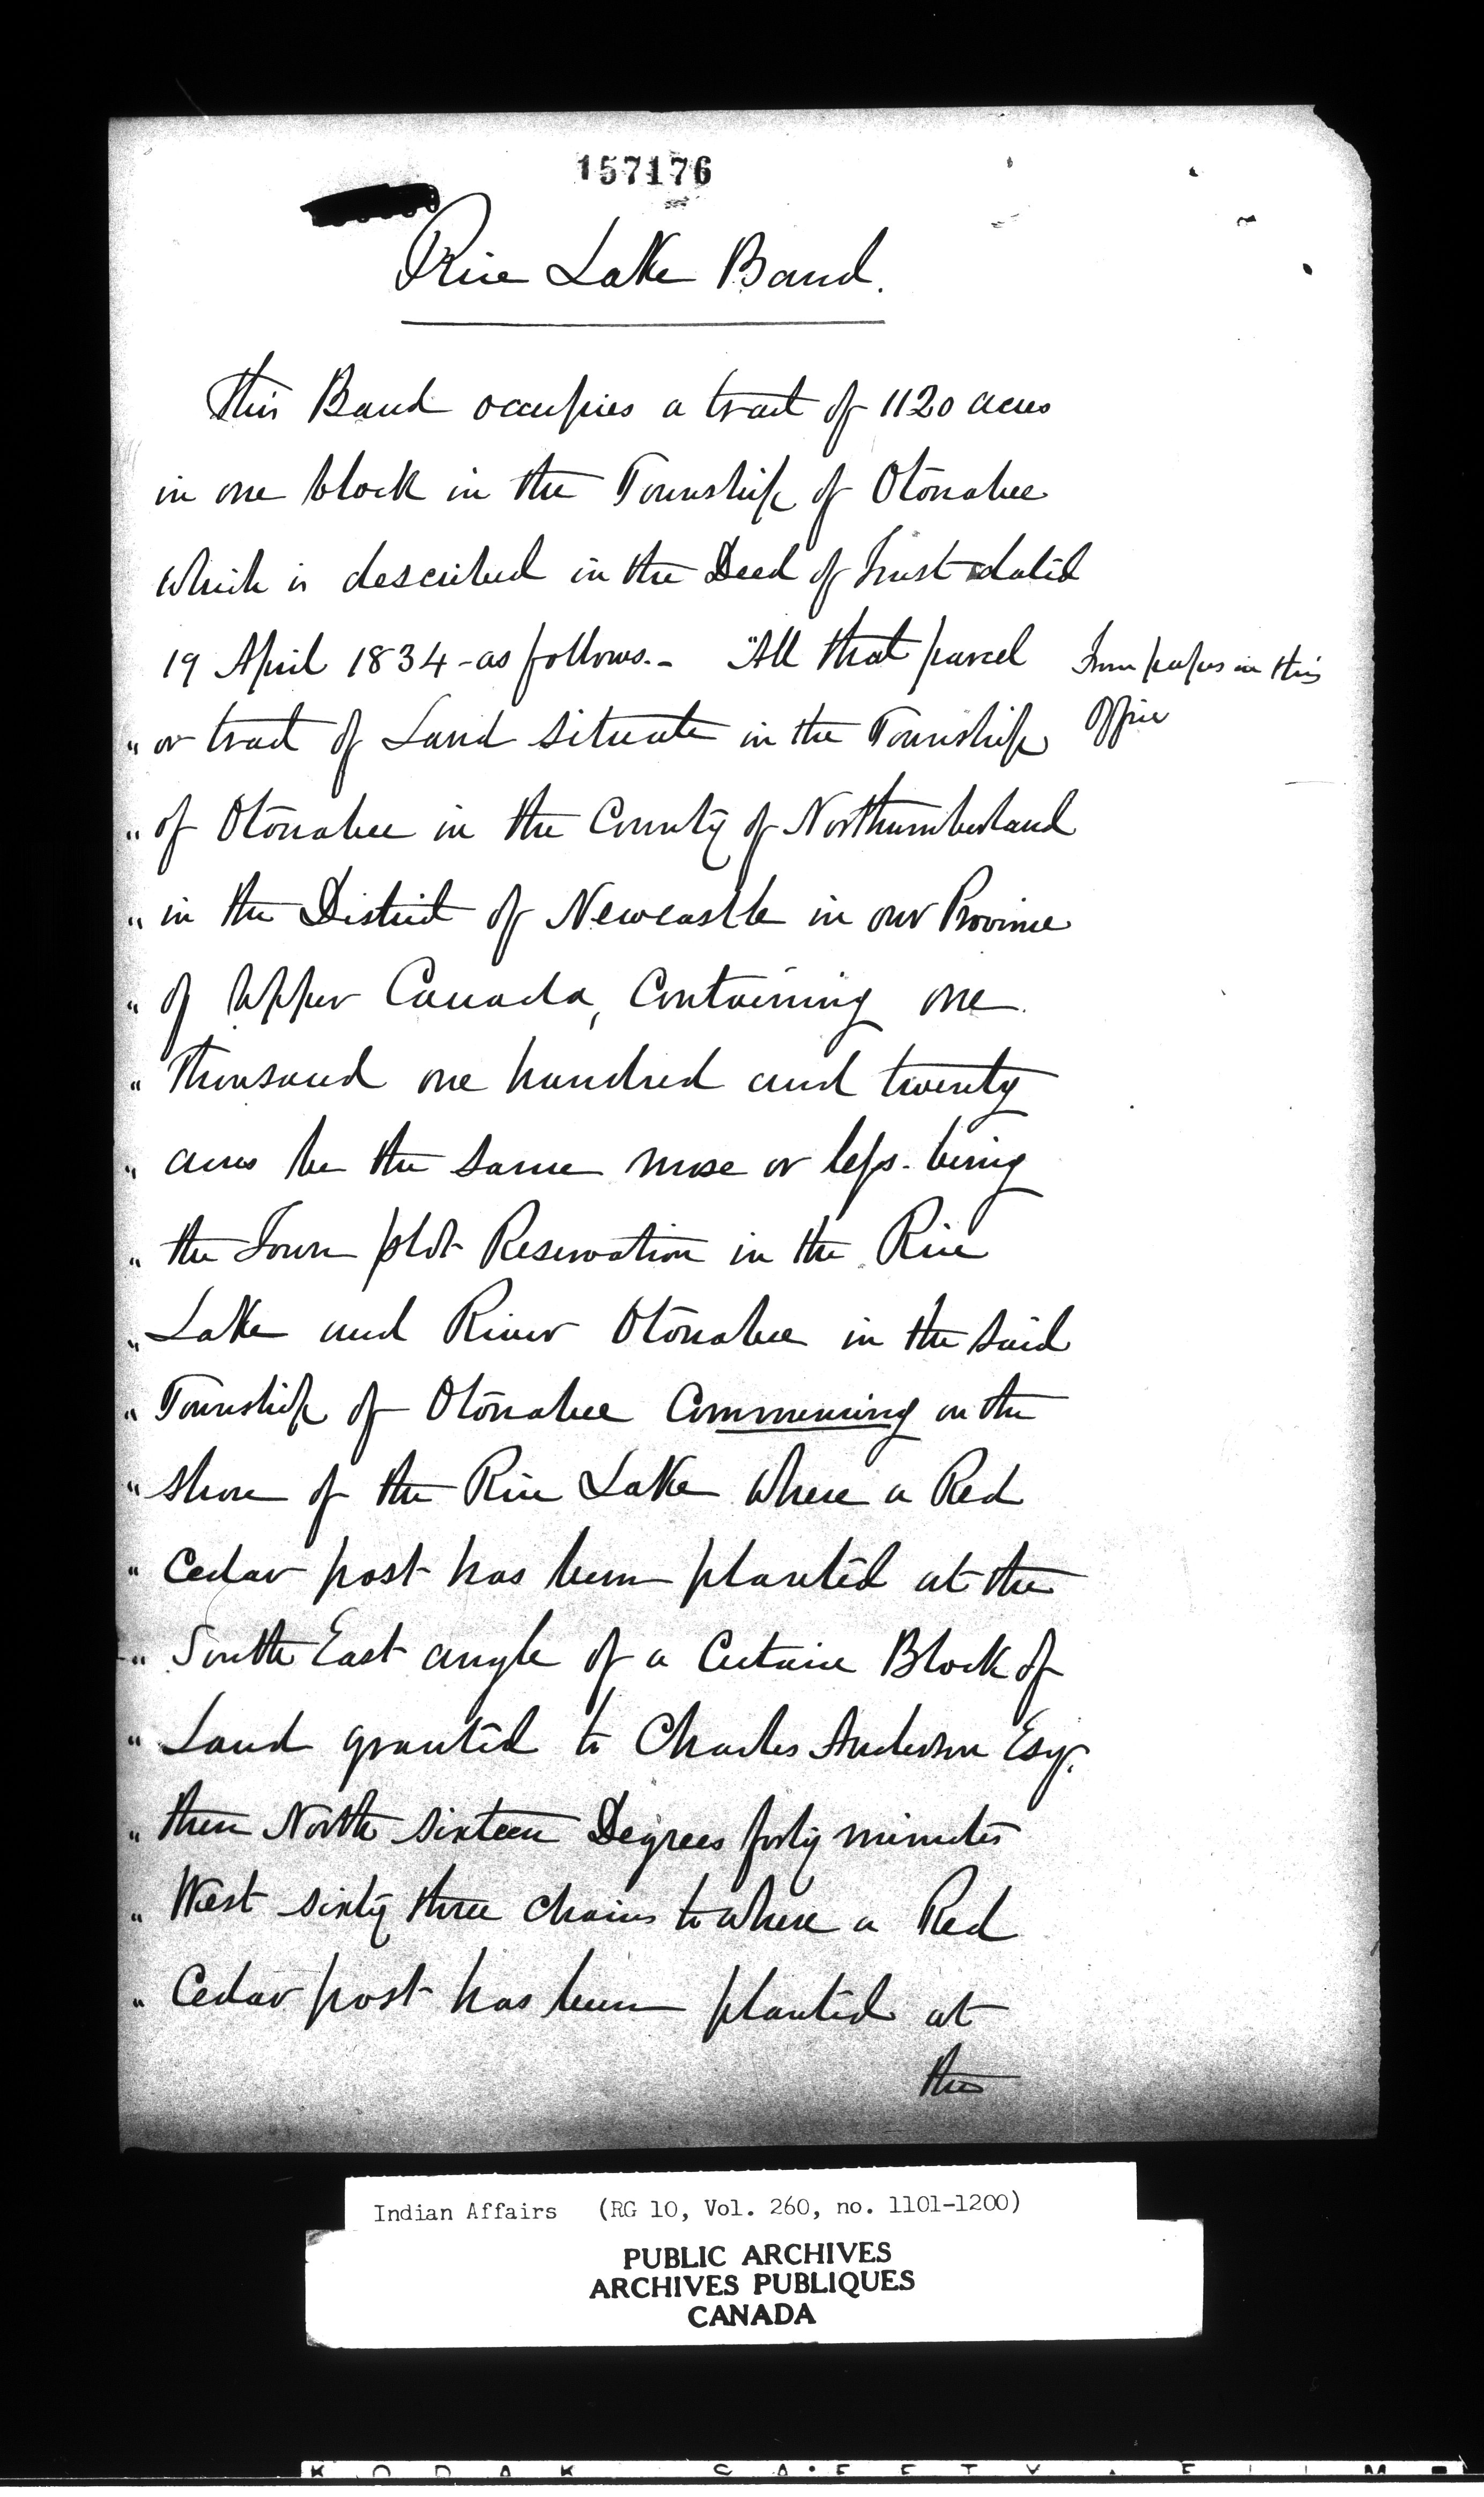 157176
Rice Lake Band.
This Band occupies a tract of 1120 acres
in one block in the Township of Otonabee
which is described in the Deed of Trust dated
19 April 1834 - as follows. - "All that parcel
From papers in this
Office
" or tract of Land situate in the Township
" of Otonabee in the County of Northumberland
" in the District of Newcastle in our Province
" of Upper Canada, Containing one
" thousand one hundred and twenty
" acres be the same more or less - being
" the Town plot Reservation in the Rice
" Lake and River Otonabee in the said
" Township of Otonabee Commencing on the
" shore of the Rice Lake where a Red
" Cedar post has been planted at the
" South East angle of a Certain Block of
" Land granted to Charles Anderson Esqr.
" then North sixteen Degrees forty minutes
" West sixty three chains to where a Red
" Cedar post has been planted at
the
Indian Affairs (RG 10, Vol. 260, no. 1101-1200)
PUBLIC ARCHIVES
ARCHIVES PUBLIQUES
CANADA
KODAK SAFETY FILM